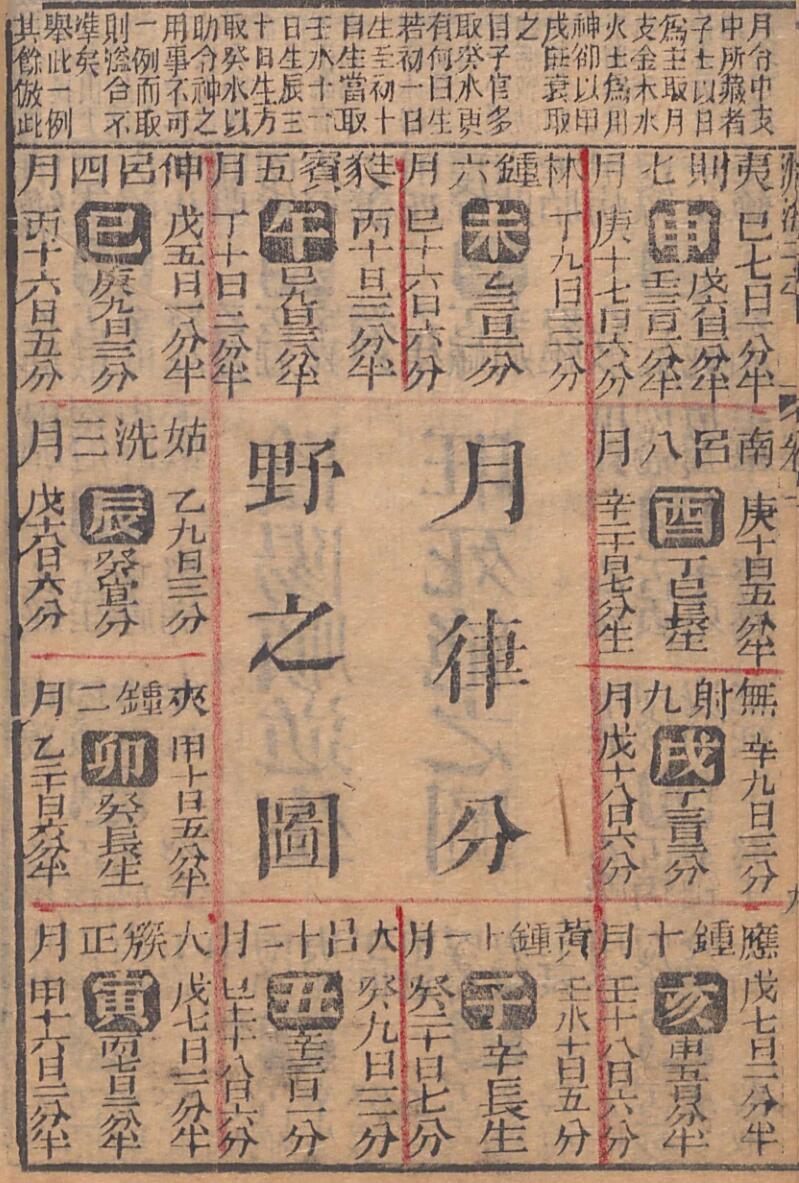 月令中支
中所藏者
子士以日
爲主取月
支金木水
火土爲用
神卻以甲
戌旺衰取
之
日子官多
取癸水更
有何日生
若初一日
生至初十
日生當取
壬水十一
日生辰三
十日生方
取癸水以
助令神之
用事不可
一例而取
則溢合不
準矣
舉此一例
其餘倣此
月律分
野之圖
夷則七月
申
巳七日一分半
戊六日二分半
壬三日一分半
庚十七日六分
林鍾六月
未
丁九日三分
乙三日二分
巳十六日六分
蕤賓五月
午
丙十日三分半
巳九日三分半
丁十日二分半
仲呂四月
巳
戊五日一分半
庚九日三分
丙十六日五分
南呂八月
酉
庚十日五分半
丁巳長生
辛二十日七分生
姑洗三月
辰
乙九日三分
癸一分
戊十八日六分
無射九月
戌
辛九日三分
丁三日二分
戊十八日六分
夾鍾二月
卯
甲十日五分半
癸長生
乙二十日六分半
應鍾十月
亥
戊七日二分半
甲五日一分半
壬十八日六分
黃鍾十一月
子
壬水十日五分
辛長生
癸二十日七分
大呂十二月
丑
癸九日三分
辛三日一分
巳十八日六分
大簇正月
寅
戊七日二分半
丙七日二分半
甲十六日二分半